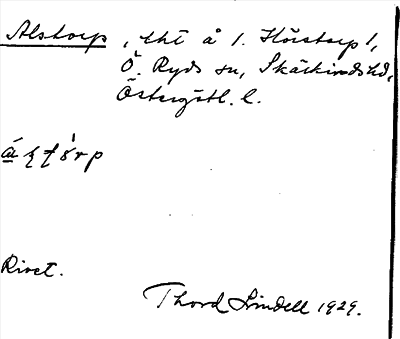 Alstorp, tht å 1. Hörstorp 1,
Ö. Ryds sn, Skärkinds hd,
Östergötl. l.
Rivet.
Thord Lindell 1929.